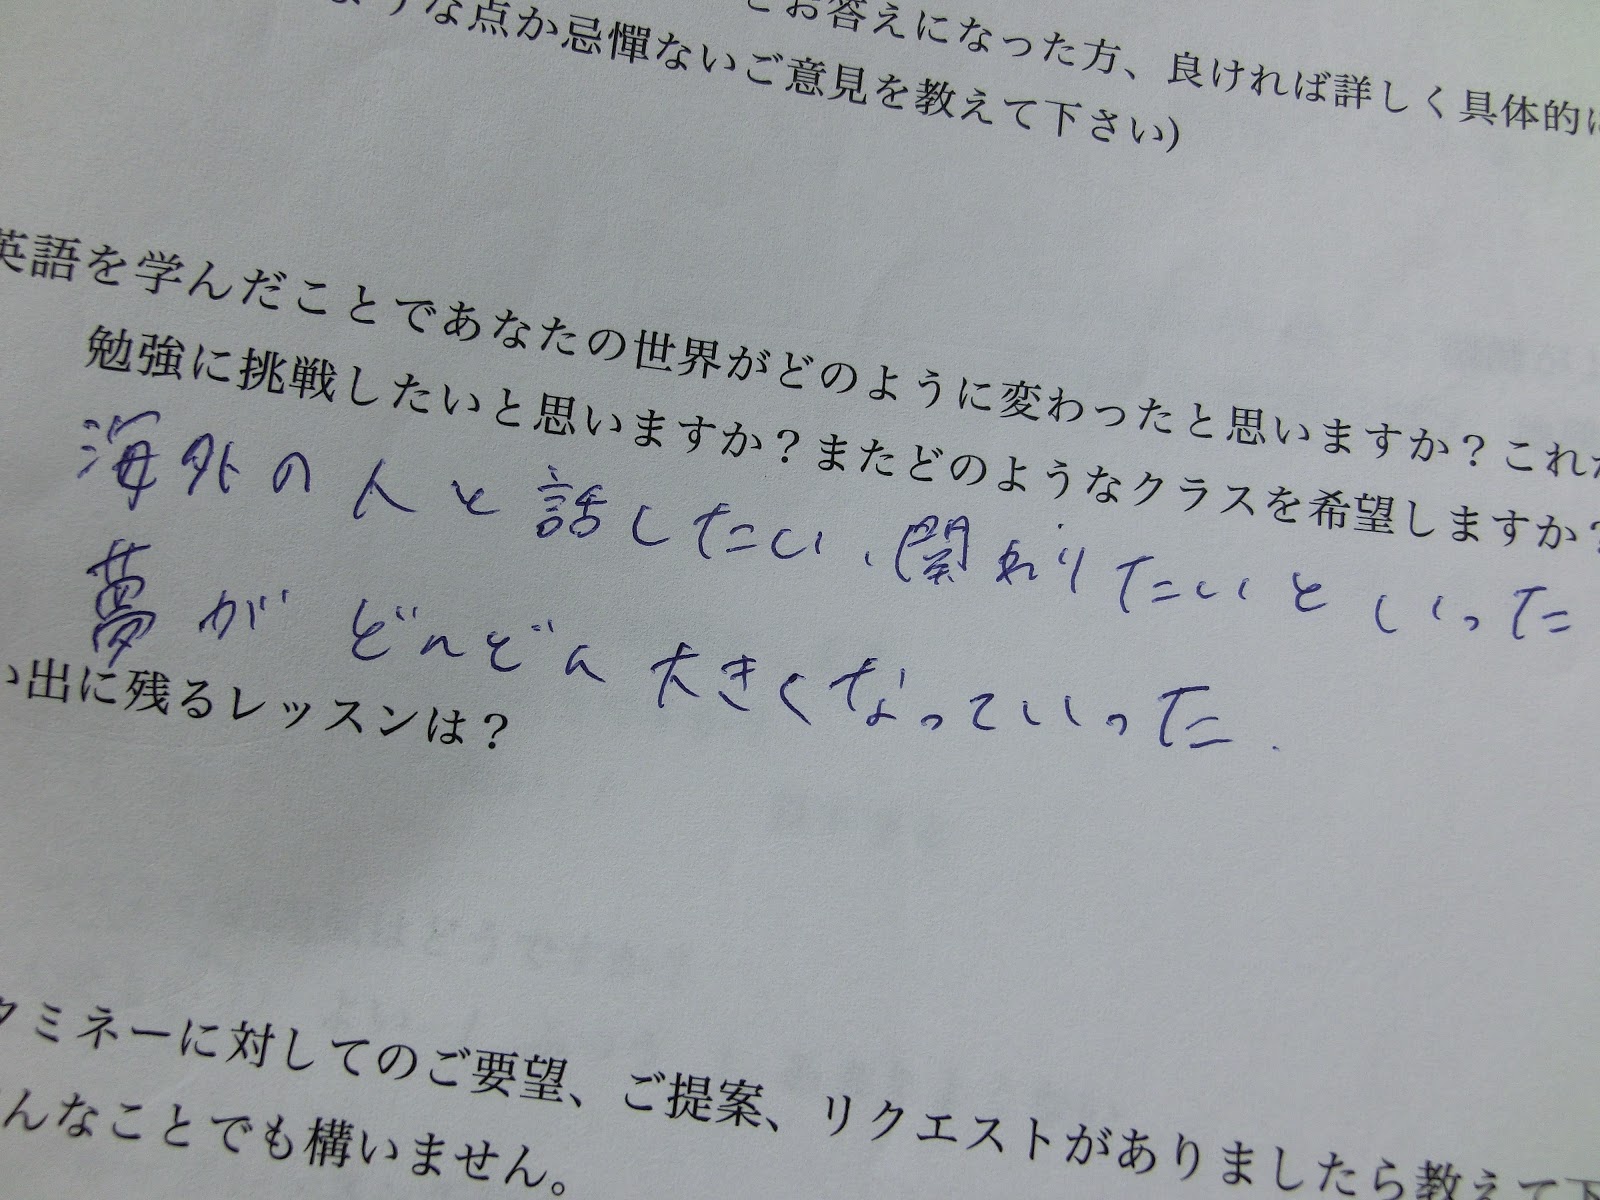 とお答えになった方、良ければ詳しく具体的に
ような点か忌憚ないご意見を教えて下さい)
英語を学んだことであなたの世界がどのように変わったと思いますか？これか
勉強に挑戦したいと思いますか？またどのようなクラスを希望しますか？
海外の人と話したい、関わりたいといった
夢がどんどん大きくなっていった.
い出に残るレッスンは？
クミネーに対してのご要望、ご提案、リクエストがありましたら教えて下
んなことでも構いません。